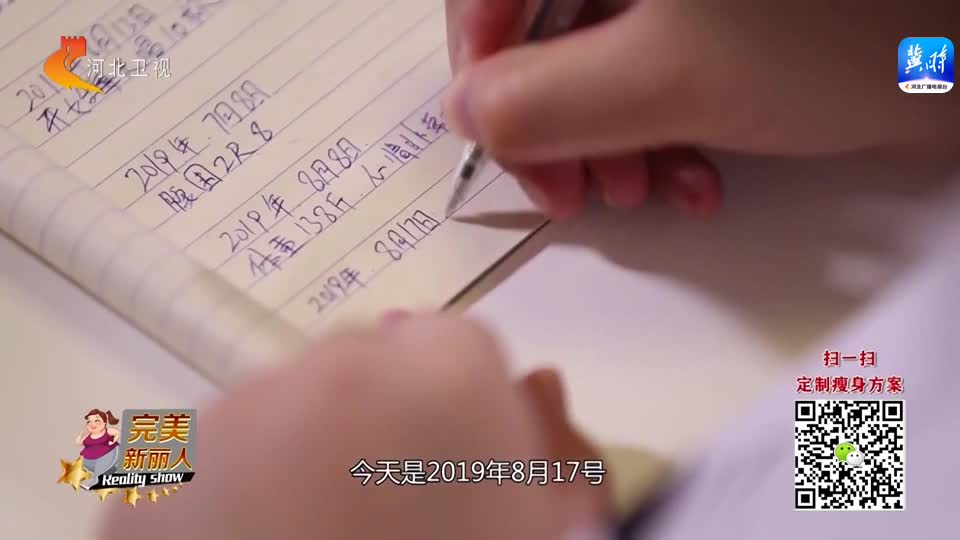 河北卫视
冀时
河北广播电视台
2019年 7月8日
腹围 2尺8
2019年 8月8日
体重 138斤
2019年 8月17日
扫一扫
定制瘦身方案
完美
新丽人
Reality show
今天是2019年8月17号